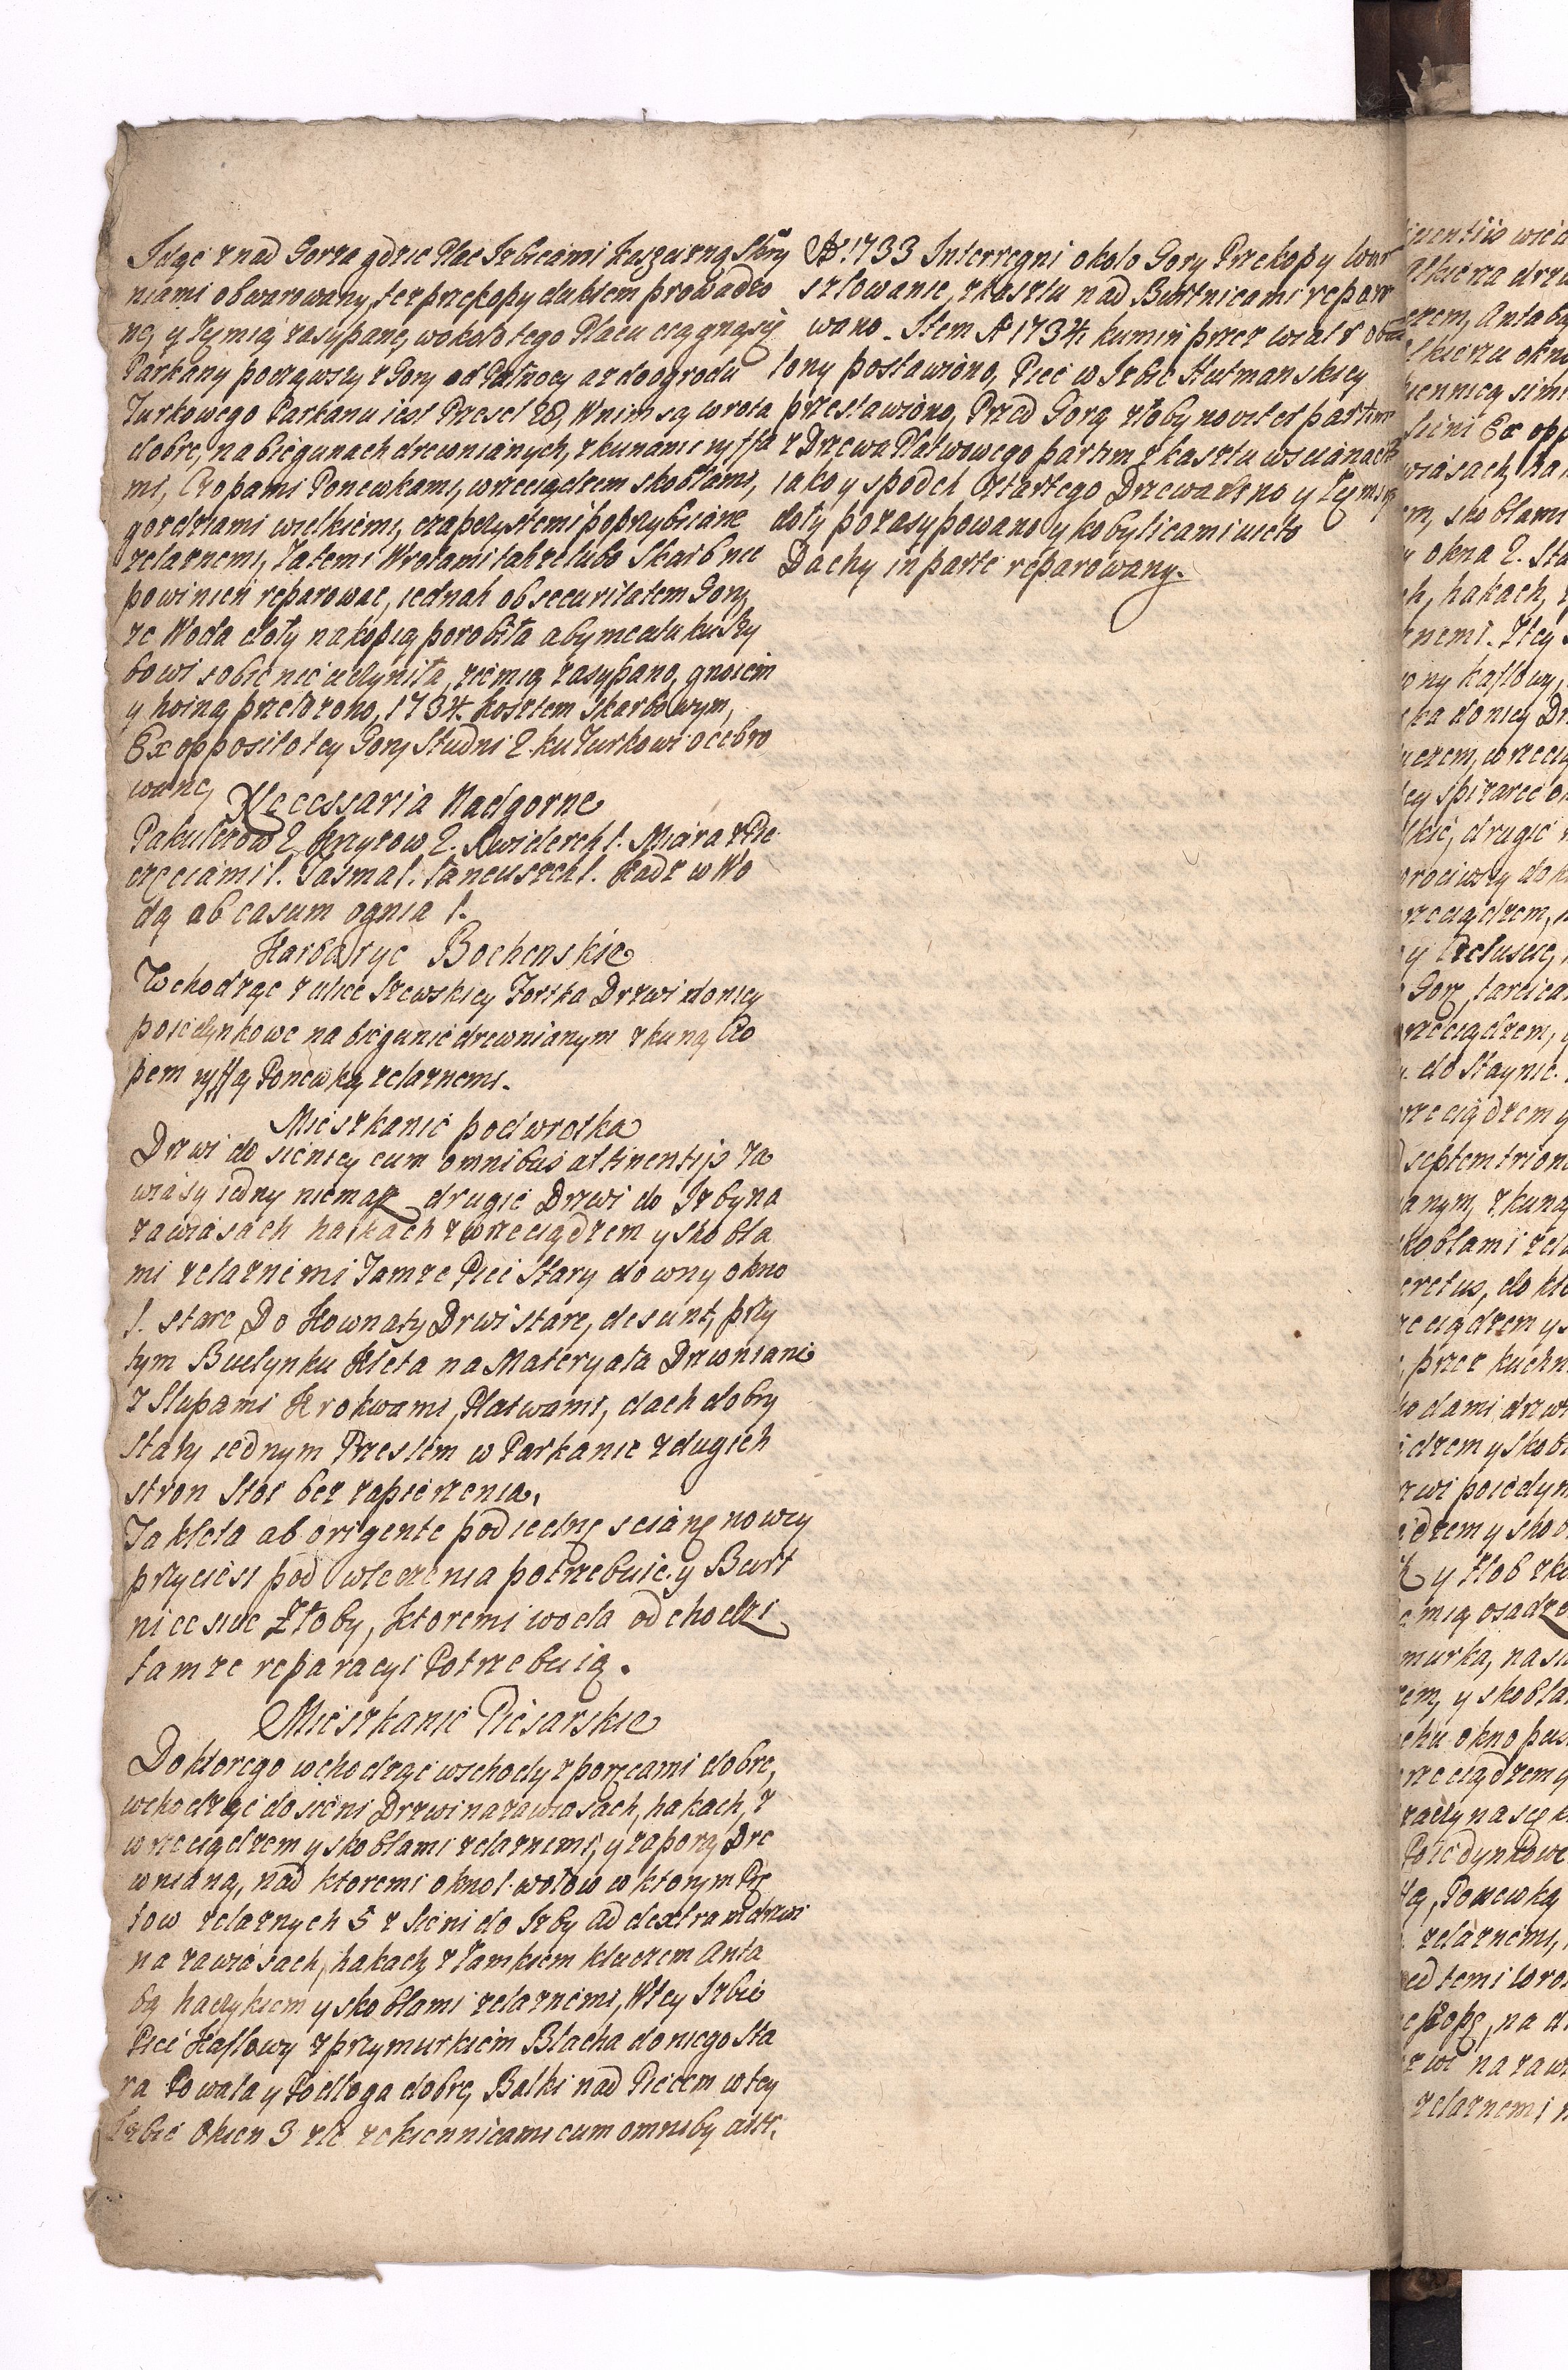 Idąc z nad Gorza gdzie Plac Izbicami Kaszcizną Skrzy
niami obwarowany, też przekopy duktem prowadzo
ne, y Zymią zasypane, wokoło tego Placu ciągną się
Parkany począwszy z Gory od Połnocy az do ogrodu
Turkowego Parkanu iest Przeseł 28, W nim są wrota
dobre, na biegunach drewnianych, z kunami ryffa
mi, Czopami Ponewkami, wrzeciądzem skoblami,
gozdziami wielkiemi, czapczystemi poprzybiiane
zelaznemi, Za temi Wrotami lubo Skarb nie
powinien reparować, iednak ob securitatem Gory
ze Woda doły na kopią porobiła aby meatu ku Szy
bowi sobie nie uczyniła, ziemią zasypano, gnoiem
y hoiną przełozono, 1734. kosztem skarbowym,
Ex opposito tey Gory Studni 2. ku Turkowi ocebro
wane,
Necessaria Nadgorne
Pakulcow 2 Krzyzow 2. Swiderek 1. Miara z Pie
częciami 1. Tasma 1. Łancuszek 1. Kadz w Wo
dą ab casum ognia 1.
Harbaryc Bochenskie
Wchodząc z ulice Szewskiey Fortka Drzwi do niey
poiedynkowe na biegunie drewnianym z kuną Czo
pem ryffą Ponewką zelaznemi.
Mieszkanie podwrotka
Drzwi do sieniey cum omnibus attinentijs Za
wiasy iedny niemasz drugie Drzwi do Izby na
zawiasach hakach z wrzeciądzem y skobla
mi zelaznemi Tamze Piec Stary do wny okno
1. stare Do Kownaty Drwi stare, desunt, przy
tym Budynku Kleta na Materyała Drzwniane
z Słupami Krokwami, Płatwami, dach dobry
Stary iednym Przesłem w Parkanie z dugich
stron Stoi bez zapierzenia,
Ta kleta ab origente pod iedną scianę nowey
przyciesi pod wleczenia potrzebuie, y Burt
nice siue Złoby, Ktoremi woda odchodzi
tamze reparacyi Potrzebuią.
Mieszkanie Pisarskie
Do ktorego wchodząc wschody z poręcami dobre,
wchodząc do sieni Drzwi na zawiasach, hakach, z
wrzeciądzem y skoblami zelaznemi, y zaporą Dre
wnianą, nad ktoremi okno 1 w ktorym Prę
tow zelaznych 5 z sieni do Izby ad dextram drzwi
na zawiasach, hakach, z Zamkiem kluczem Anta
bą haczykiem y skoblami zelaznemi, W tey Izbie
Piec Kaflowy z przymurkiem Blacha do niego Sta
ra Powała y Podłoga dobre, Balki nad Piecem w tey
Izbie Okien 3 złe z okiennicami cum omniby att.
Aº 1733 Interregni około Gory Przekopy
szlowanie, z kasztu nad Burtnicami reparo
wano. Item Aº 1734 kumin przez wiatr oba
lony postawiono, Piec w Izbie Hutmanskiey
przestawiono, Przed Gorą złoby noviter partim
z Drzewa Płatwowego partim z kasztu w scianach
iako y spodek Otartego Drzewa y Zymią
doły pozasypowano y kobylicami
Dachy in parte reparowany.